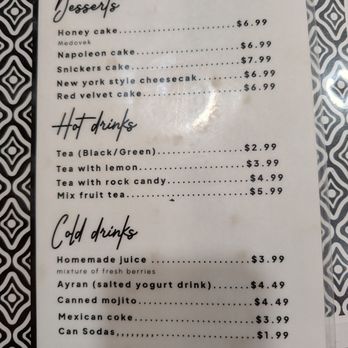 Desserts
Honey cake....................$6.99
Medovek
Napoleon cake....................$6.99
Snickers cake....................$7.99
New york style cheesecak....$6.99
Red velvet cake....................$6.99
Hot drinks
Tea (Black/Green)....................$2.99
Tea with lemon....................$3.99
Tea with rock candy..............$4.99
Mix fruit tea....................$5.99
Cold drinks
Homemade juice ....................$3.99
mixture of fresh berries
Ayran (salted yogurt drink)........$4.49
Canned mojito....................$4.49
Mexican coke....................$3.99
Can Sodas,,,,,,,..................$1.99